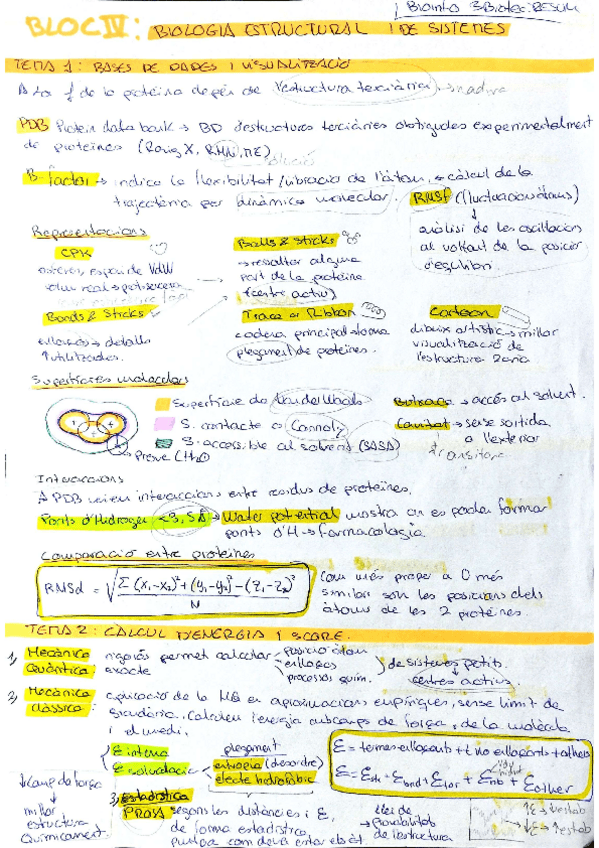 Bioinfo
BLOC IV: BIOLOGIA ESTRUCTURAL I DE SISTEMES
TEMA 1: BASES DE DADES I VISUALITZACIÓ
de la proteïna depèn de l'estructura terciària → nadiua
PDB Protein data bank → BD d'estructures terciàries obtingudes experimentalment
de proteïnes (Raig X, RMN, ME)
B-factor → indica la flexibilitat / vibració de l'àtom, → càlcul de la
trajectòria per dinàmica molecular. RMSf (fluctuacions àtoms)
anàlisi de les oscil·lacions
al voltant de la posició
d'equilibri.
Representacions
CPK
Balls & Sticks
→ ressaltar alguna
part de la proteïna
(centre actiu)
Bonds & Sticks
enllaços → detalls
↑ utilitzades.
Trace or Ribbon
cadena principal → forma
plegament de proteïnes.
Cartoon
dibuix artístic → millor
visualització de
l'estructura 2ària
Superfícies moleculars
Superfície de Van der Waals
S. contacte o Connolly
S. accessible al solvent (SASA)
Prova (H₂O)
Butxaca → accés al solvent.
Cavitat → sense sortida
a l'exterior
Interaccions
A PDB veiem interaccions entre residus de proteïnes.
Ponts d'Hidrogen <3,5Å → Water potential mostra on es poden formar
ponts d'H → farmacologia.
Comparació entre proteïnes
RMSd = √ Σ (x₁-x₂)² + (y₁-y₂)² - (z₁-z₂)² / N
Com més proper a 0 més
similar són les posicions dels
àtoms de les 2 proteïnes.
TEMA 2: CÀLCUL D'ENERGIA I SCORE.
1) Mecànica Quàntica:
rigorós permet calcular
exacte
posició àtom
enllaços
processos quím.
de sistemes petits.
centres actius.
2) Mecànica clàssica:
aplicació de la MQ en aproximacions empíriques, sense límit de
grandària. Calculem l'energia amb camps de força, de la molècula
i el medi.
E interna
E solvatació
plegament
entropia (desordre)
efecte hidrofòbic
E = termes enllaçants + t. no enllaçants + altres
↓ camp de força
millor
estructura
químicament.
3) Estadística
PROSA
segons les distàncies i E,
de forma estadística,
llei de
probabilitats
de l'estructura
↑E → ↓estab
↓E → ↑estab